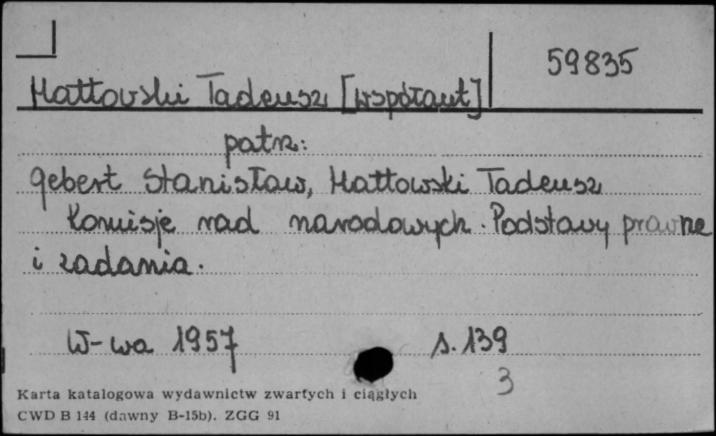 59835
Mattowski Tadeusz [współaut]
patrz:
Gebert Stanisław, Mattowski Tadeusz
Komisje rad narodowych. Podstawy prawne
i zadania.
W-wa 1957 s. 139
3
Karta katalogowa wydawnictw zwartych i ciągłych
CWD B 144 (dawny B-15b). ZGG 91